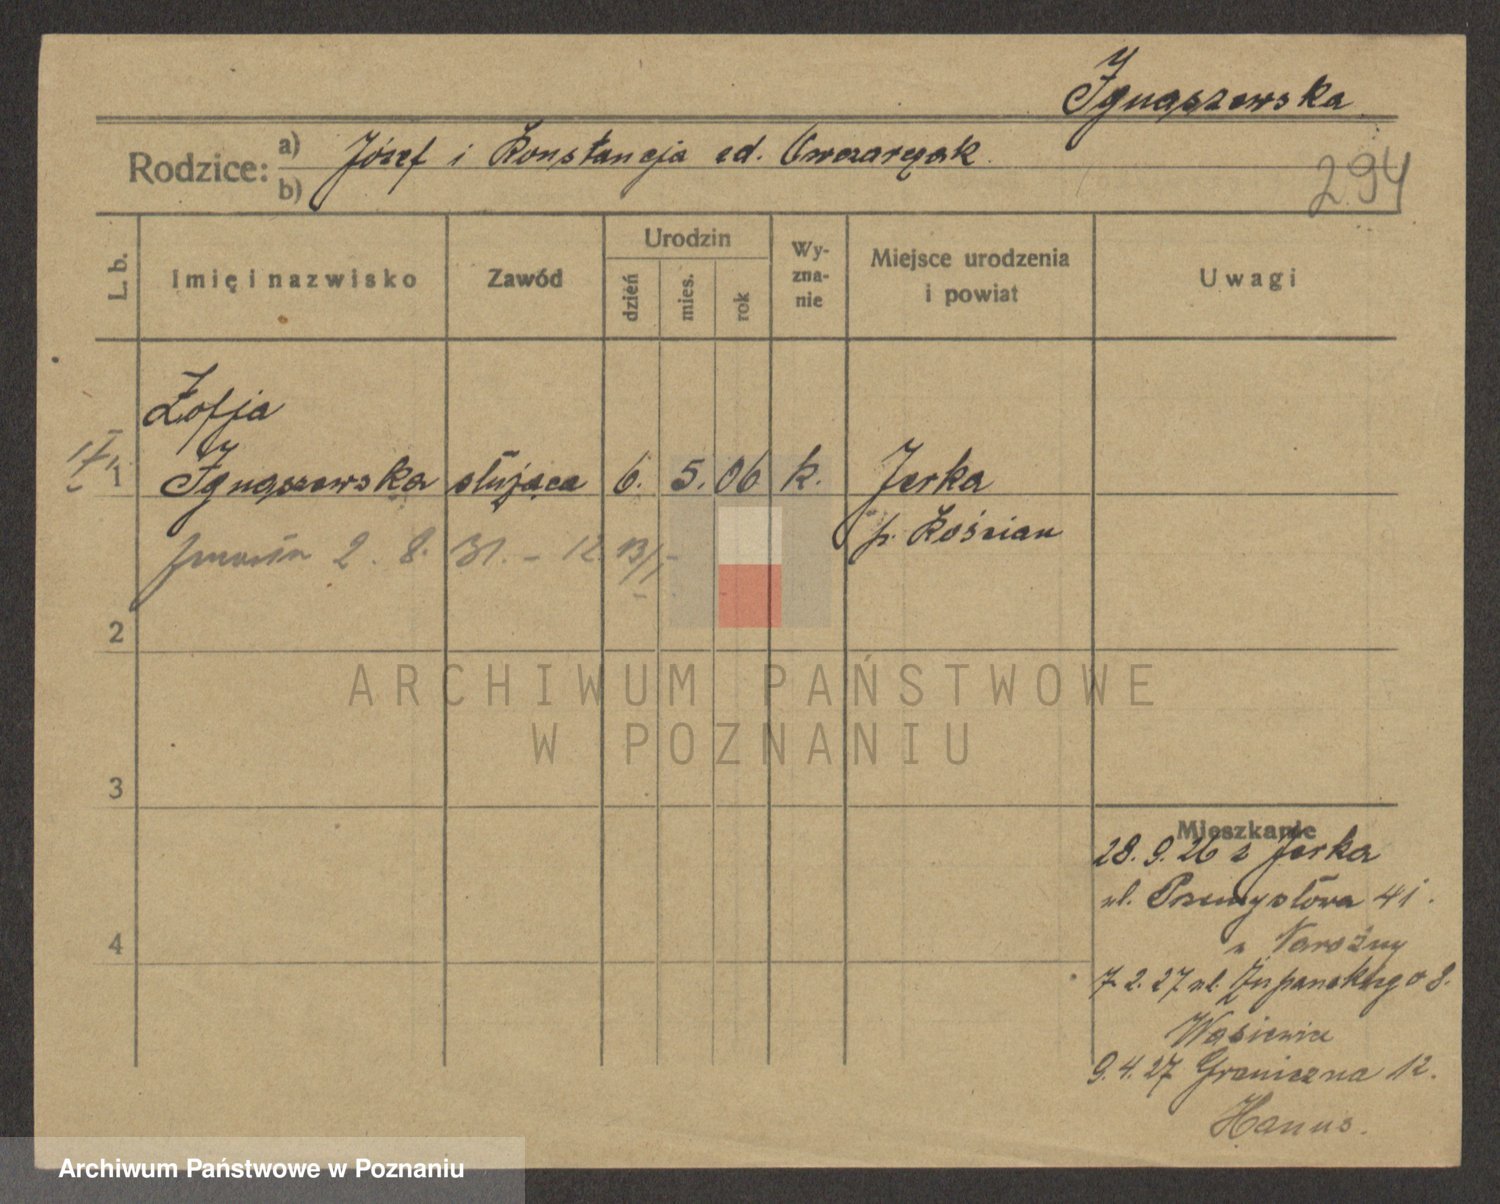 Ignaszewska
Rodzice: a) Józef i Konstancja zd. Owczarczak
b)
294
L. b.
Imię i nazwisko
Zawód
Urodzin
dzień
mies.
rok
Wy-
zna-
nie
Miejsce urodzenia
i powiat
Uwagi
Zofja
1 Ignaszewska służąca 6. 5. 06 k. Jerka
p. Kościan
2. 8. 31. - 12
2
ARCHIWUM PAŃSTWOWE
W POZNANIU
3
Mieszkanie
28.9.26 z Jerka
ul. Przemysłowa 41.
u Narożny
4
7.2.27 ul. Żupańskiego 8.
Wąsiewicz
9.4.27 Graniczna 12.
Hanus.
Archiwum Państwowe w Poznaniu